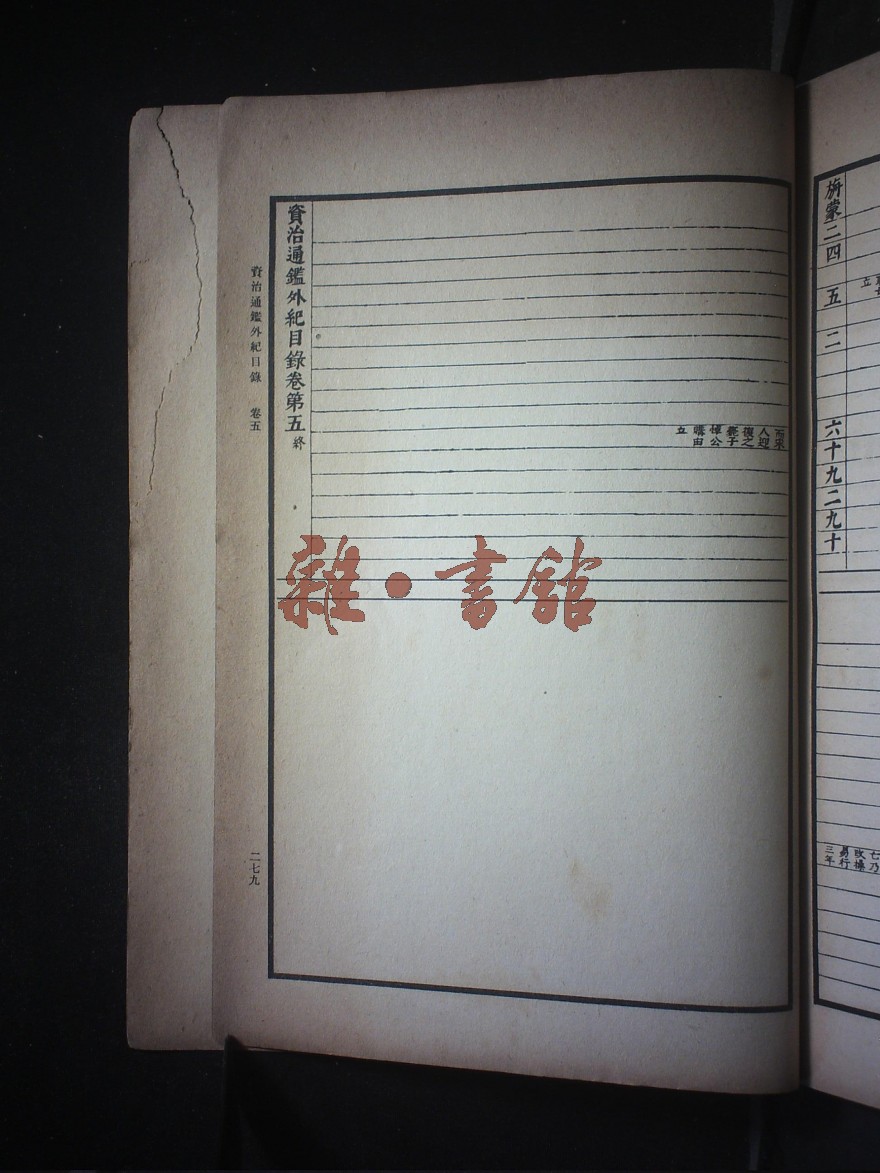 立
旃蒙二四 五 二 六十九二九十
七乃
改操
易行
三年
而宋
人迎
復之
薨子
悼公
購由
立
資治通鑑外紀目錄卷第五終
資治通鑑外紀目錄 卷五
二七九
雜·書館